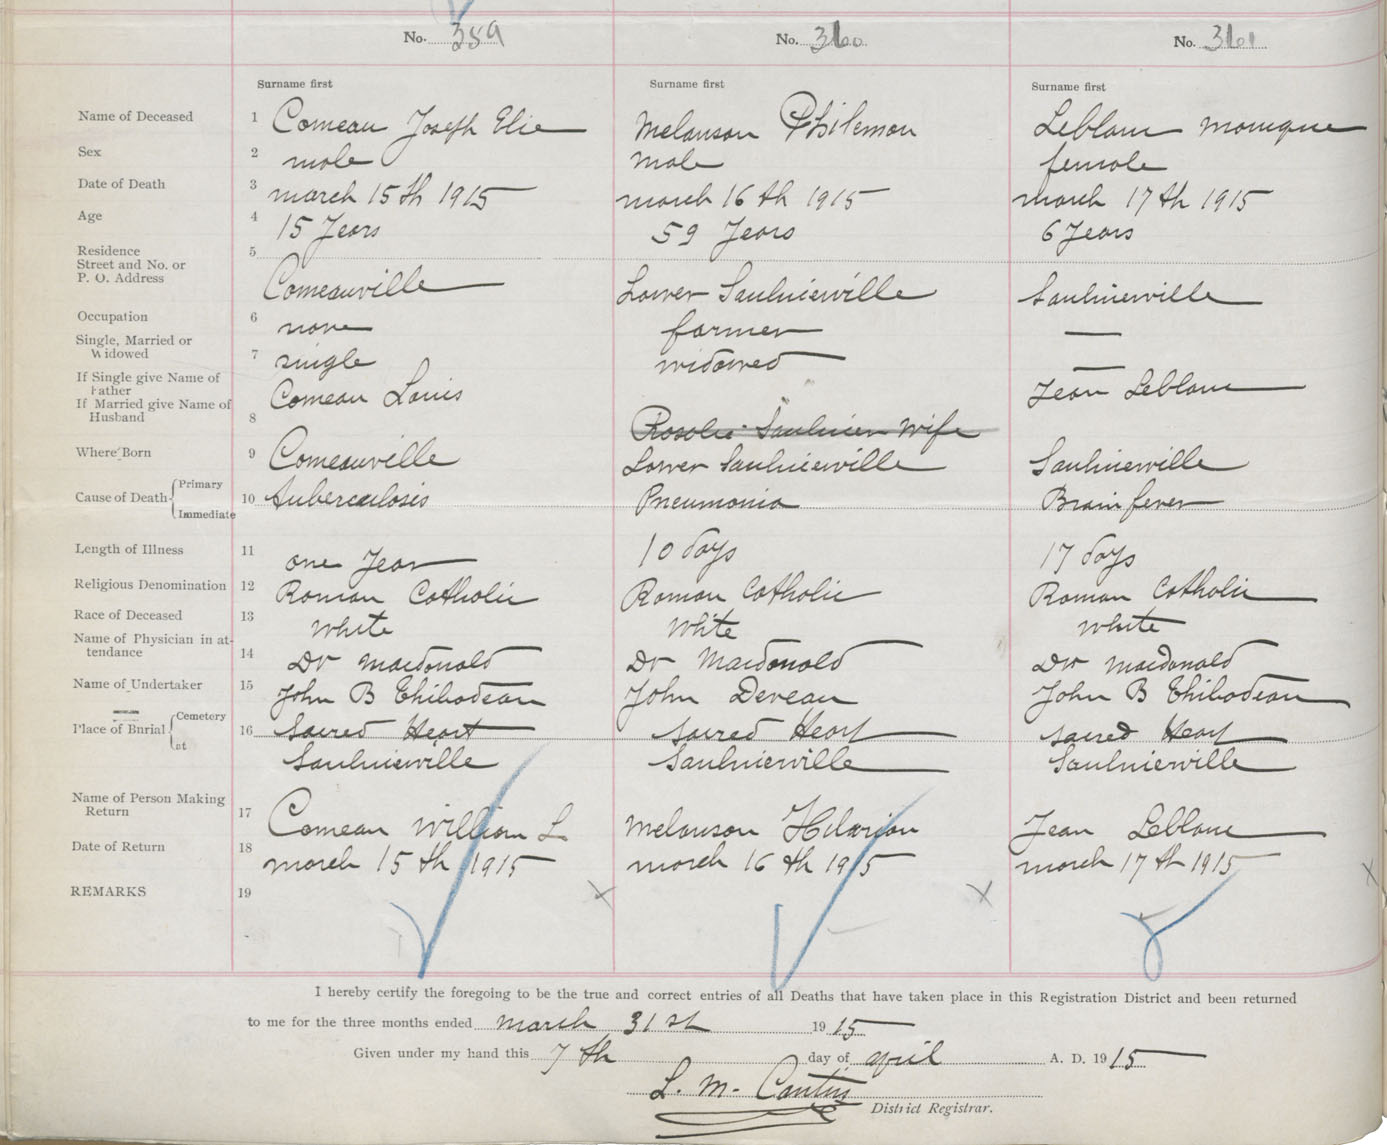 No. 359 No. 360 No. 361
Surname first Surname first Surname first
Name of Deceased 1 Comeau Joseph Elie Melanson Philemon Leblanc Monique
Sex 2 male male female
Date of Death 3 march 15th 1915 march 16th 1915 march 17th 1915
Age 4 15 Years 59 Years 6 Years
Residence 5
Street and No. or
P. O. Address Comeauville Lower Saulnierville Saulnierville
Occupation 6 none farmer —
Single, Married or
Widowed 7 single widowed —
If Single give Name of
Father Comeau Louis Jean Leblanc
If Married give Name of
Husband 8 Rosalie Saulnier Wife
Where Born 9 Comeauville Lower Saulnierville Saulnierville
Cause of Death Primary
Immediate 10 tuberculosis Pneumonia Brain fever
Length of Illness 11 one Year 10 days 17 days
Religious Denomination 12 Roman Catholic Roman Catholic Roman Catholic
Race of Deceased 13 White White White
Name of Physician in at-
tendance 14 Dr Macdonald Dr Macdonald Dr Macdonald
Name of Undertaker 15 John B Thibodeau John Deveau John B Thibodeau
Place of Burial Cemetery
at 16 Sacred Heart Sacred Heart Sacred Heart
Saulnierville Saulnierville Saulnierville
Name of Person Making
Return 17 Comeau William L Melanson Hilarion Jean Leblanc
Date of Return 18 march 15th 1915 march 16th 1915 march 17th 1915
REMARKS 19
I hereby certify the foregoing to be the true and correct entries of all Deaths that have taken place in this Registration District and been returned
to me for the three months ended march 31st 1915
Given under my hand this 7th day of april A. D. 1915
L. M. Cantin
District Registrar.